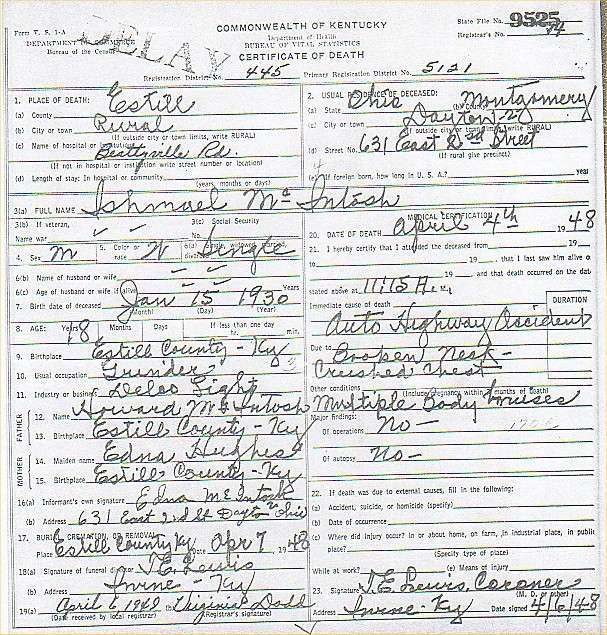 Form V. S. 1-A
COMMONWEALTH OF KENTUCKY
State File No. 9525
DEPARTMENT OF COMMERCE
Bureau of the Census
DELAY
Department of Health
BUREAU OF VITAL STATISTICS
Registrar's No. 34
CERTIFICATE OF DEATH
Registration District No. 445 Primary Registration District No. 5121
1. PLACE OF DEATH:
(a) County Estill
(b) City or town Rural
(If outside city or town limits, write RURAL)
(c) Name of hospital or institution: Beattyville Rd.
(If not in hospital or institution write street number or location)
(d) Length of stay: In hospital or community
(years, months or days)
2. USUAL RESIDENCE OF DECEASED:
(a) State Ohio (b) County Montgomery
(c) City or town Dayton
(If outside city or town limits, write RURAL)
(d) Street No. 631 East 2nd Street
(If rural give precinct)
(e) If foreign born, how long in U. S. A.? years
3(a) FULL NAME Ishmael McIntosh
3(b) If veteran, Name war
3(c) Social Security No.
4. Sex M 5. Color or race W 6(a) Single, widowed, married, divorced Single
6(b) Name of husband or wife
6(c) Age of husband or wife if alive Years
7. Birth date of deceased Jan 15 1930
(Month) (Day) (Year)
8. AGE: Years 18 Months Days If less than one day hr. min.
9. Birthplace Estill County - Ky
10. Usual occupation Grinder
11. Industry or business Delco Light
FATHER
12. Name Howard McIntosh
13. Birthplace Estill County - Ky
MOTHER
14. Maiden name Edna Hughes
15. Birthplace Estill County - Ky
16(a) Informant's own signature Edna McIntosh
(b) Address 631 East 2nd St Dayton Ohio
17. BURIAL, CREMATION, OR REMOVAL
Place Estill County Ky Date Apr 7 1948
18(a) Signature of funeral director T. E. Lewis
(b) Address Irvine - Ky
19(a) April 6, 1948 (b) Virginia Dodd
(Date received by local registrar) (Registrar's signature)
MEDICAL CERTIFICATION
20. DATE OF DEATH April 4th 1948
21. I hereby certify that I attended the deceased from 19
to 19 , that I last saw him alive on
19 and that death occurred on the date
stated above at 11:15 A. M.
DURATION
Immediate cause of death
Auto Highway Accident
Due to Broken Neck -
Crushed Chest
Other conditions (Include pregnancy within 3 months of death)
Multiple Body bruises
Major findings:
Of operations No -
Of autopsy No -
22. If death was due to external causes, fill in the following:
(a) Accident, suicide, or homicide (specify)
(b) Date of occurrence
(c) Where did injury occur? In or about home, on farm, in industrial place, in public
place?
(Specify type of place)
While at work? (e) Means of injury
23. Signature T. E. Lewis, Coroner
(M. D. or other)
Address Irvine - Ky Date signed 4/6/48